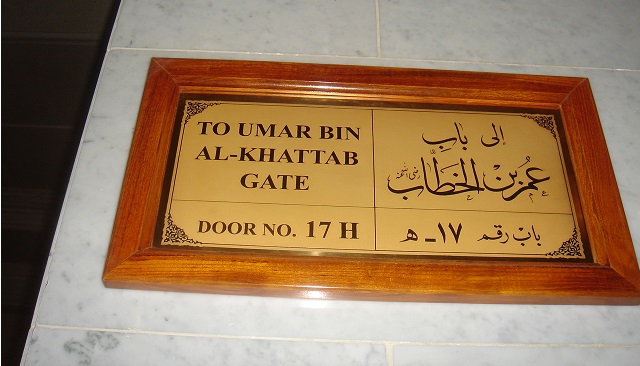 TO UMAR BIN
AL-KHATTAB
GATE
DOOR NO. 17 H
إلى باب
عمر بن الخطاب رضي الله عنه
باب رقم ١٧ـ هـ